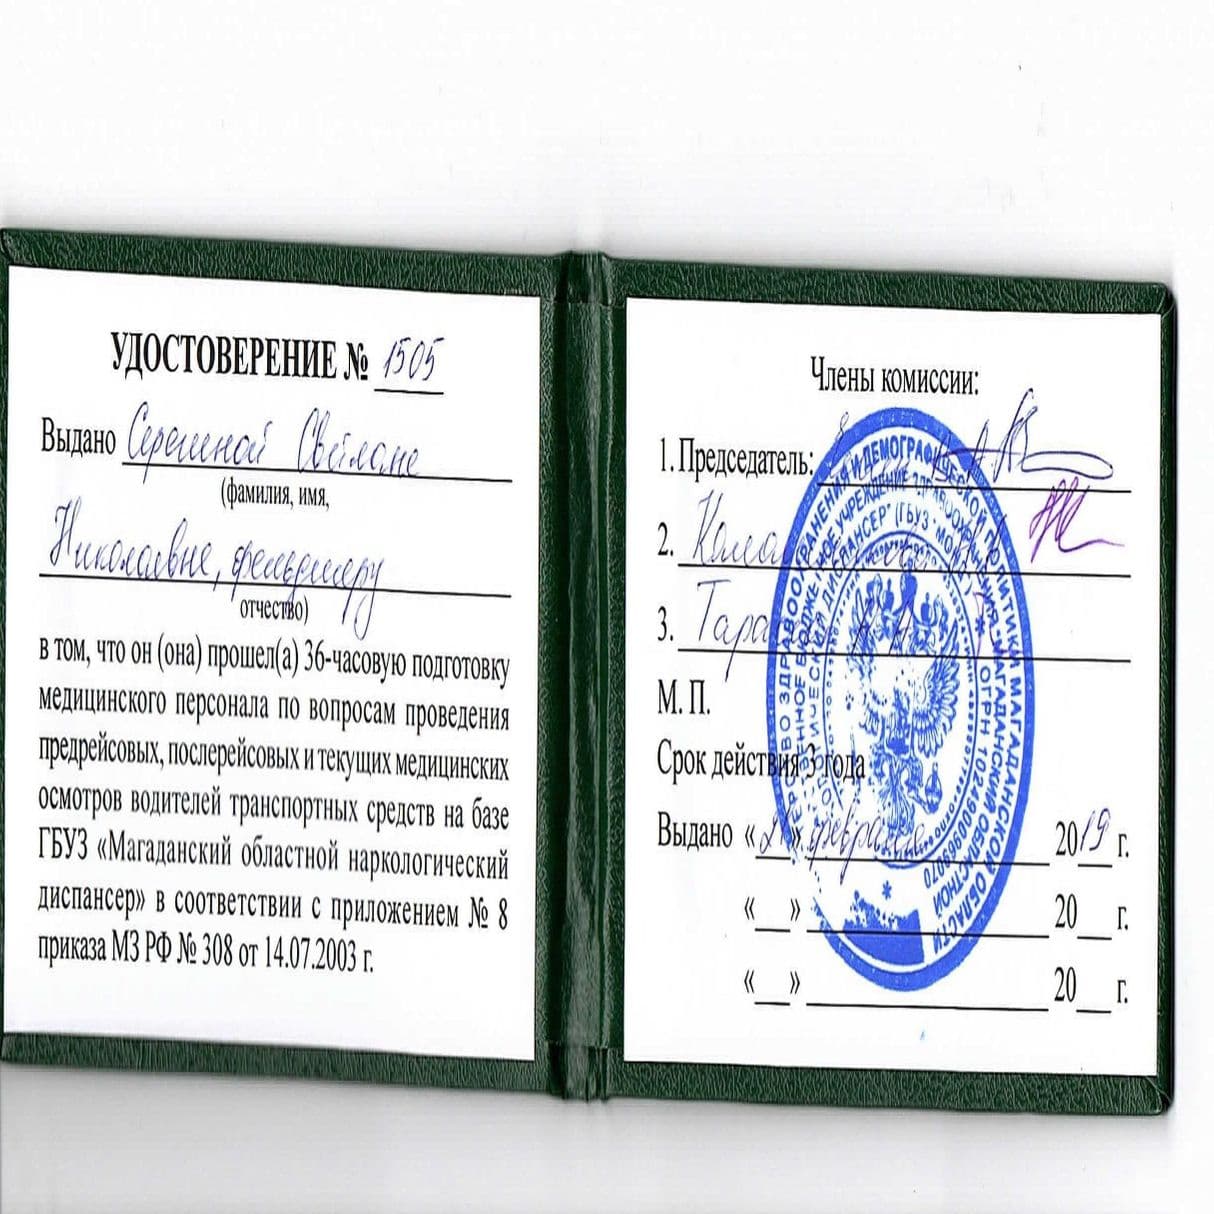 УДОСТОВЕРЕНИЕ № 1505
Выдано Серегиной Светлане
(фамилия, имя,
Николаевне, фельдшеру
отчество)
в том, что он (она) прошел(а) 36-часовую подготовку
медицинского персонала по вопросам проведения
предрейсовых, послерейсовых и текущих медицинских
осмотров водителей транспортных средств на базе
ГБУЗ «Магаданский областной наркологический
диспансер» в соответствии с приложением № 8
приказа МЗ РФ № 308 от 14.07.2003 г.
Члены комиссии:
1. Председатель:
2.
3.
М. П.
Срок действия 3 года
Выдано « » февраля 2019 г.
«__» 20__ г.
«__» 20__ г.
ЗДРАВООХРАНЕНИЯ И ДЕМОГРАФИЧЕСКОЙ ПОЛИТИКИ МАГАДАНСКОЙ ОБЛАСТИ
ОГРН 1024900969070